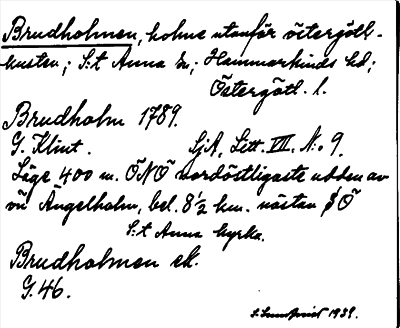 Brudholmen, holme utanför östergötl.-
kusten; S:t Anna sn; Hammarkinds hd;
Östergötl. l.
Brudholm 1789.
G. Klint. SjA, Litt. VII. N:o 9.
Läge 400 m. ÖNÖ nordöstligaste udden av
ön Ängelholm, bel. 8½ km. nästan SÖ
S:t Anna kyrka.
Brudholmen ek.
G. 46.
1939.